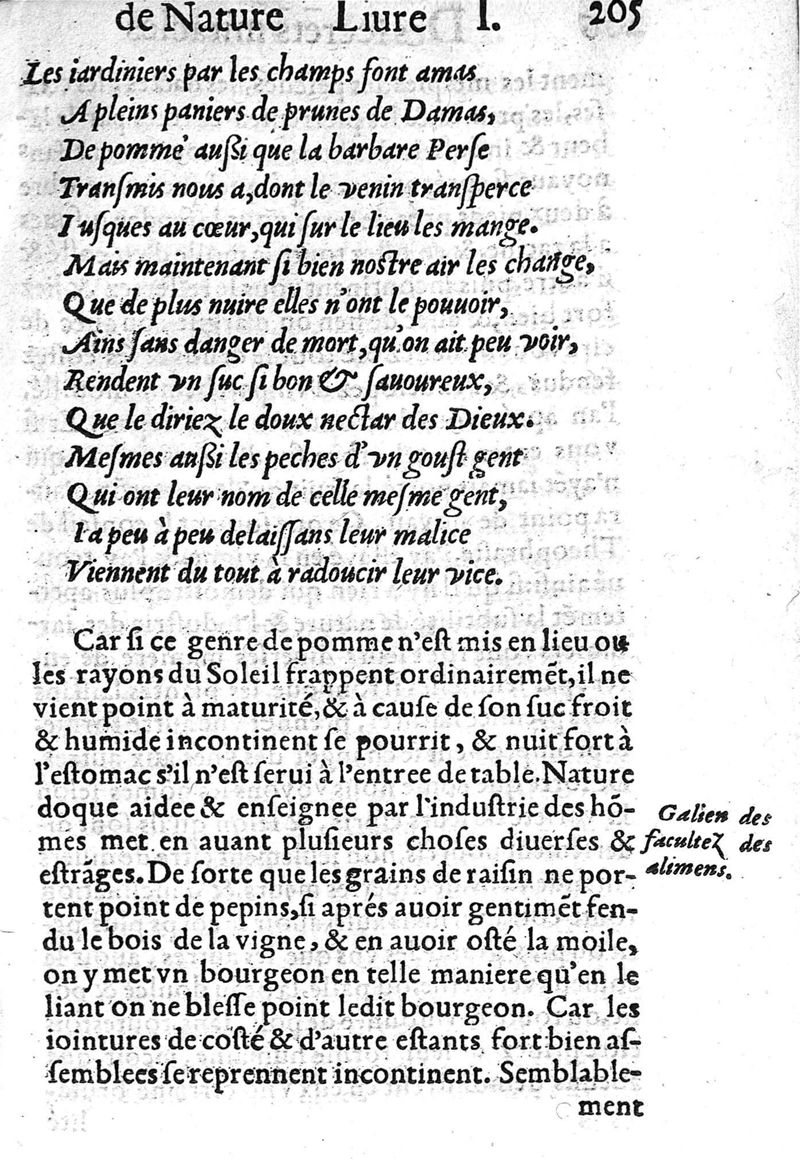 de Nature Liure I. 205
Les iardiniers par les champs font amas
A pleins paniers de prunes de Damas,
De pomme' außi que la barbare Perſe
Tranſmis nous a,dont le venin tranſperce
Iuſques au cœur,qui ſur le lieu les mange.
Mais maintenant ſi bien noſtre air les change,
Que de plus nuire elles n'ont le pouuoir,
Ains ſans danger de mort,qu'on ait peu voir,
Rendent vn ſuc ſi bon & ſauoureux,
Que le diriez le doux nectar des Dieux.
Meſmes außi les peches d'vn gouſt gent
Qui ont leur nom de celle meſme gent,
Ia peu à peu delaiſſans leur malice
Viennent du tout à radoucir leur vice.
Car ſi ce genre de pomme n'eſt mis en lieu ou
les rayons du Soleil frappent ordinairemẽt,il ne
vient point à maturité,& à cauſe de ſon ſuc froit
& humide incontinent ſe pourrit, & nuit fort à
l'eſtomac s'il n'eſt ſerui à l'entree de table.Nature
doque aidee & enſeignee par l'induſtrie des hõ-
mes met en auant pluſieurs choſes diuerſes &
eſtrãges.De ſorte que les grains de raiſin ne por-
tent point de pepins,ſi aprés auoir gentimẽt fen-
du le bois de la vigne, & en auoir oſté la moile,
on y met vn bourgeon en telle maniere qu'en le
liant on ne bleſſe point ledit bourgeon. Car les
iointures de coſté & d'autre eſtants fort bien aſ-
ſemblees ſe reprennent incontinent. Semblable-
ment
Galien des
facultez des
alimens.